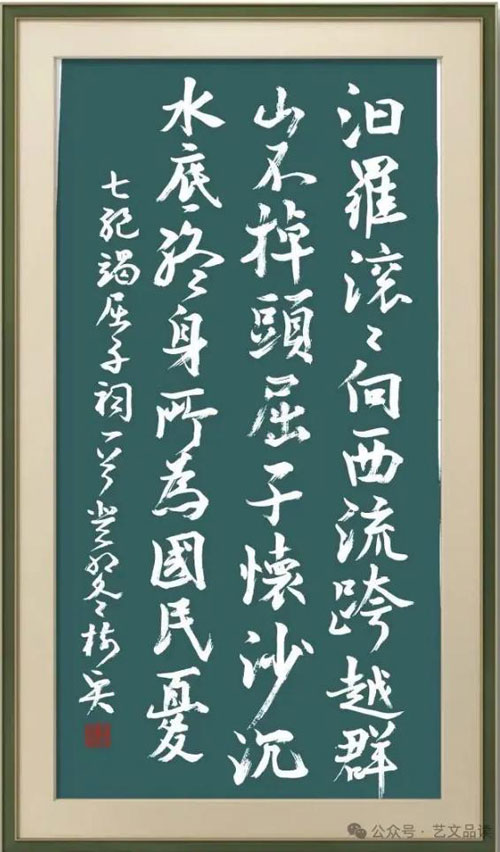 汨羅滚〻向西流跨越群
山不掉頭屈子懷沙沉
水底終身所為國民憂
七絕謁屈子祠一首癸卯冬樹
公众号·艺文品谈